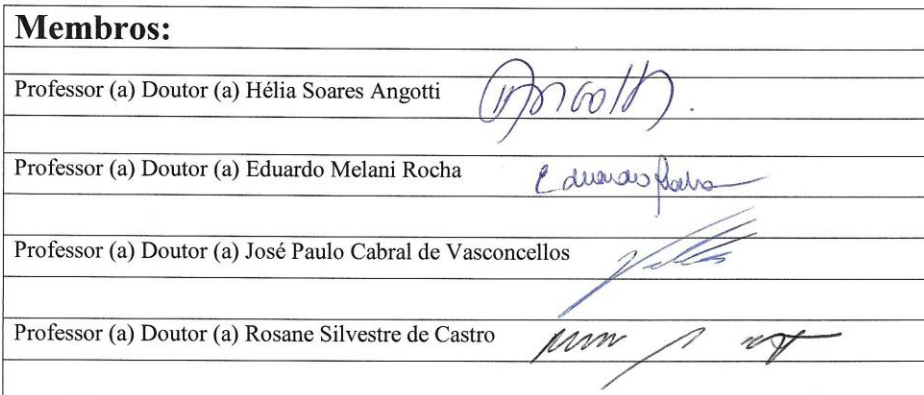 Membros:
Professor (a) Doutor (a) Hélia Soares Angotti
Professor (a) Doutor (a) Eduardo Melani Rocha
Eduardo Rocha
Professor (a) Doutor (a) José Paulo Cabral de Vasconcellos
Professor (a) Doutor (a) Rosane Silvestre de Castro